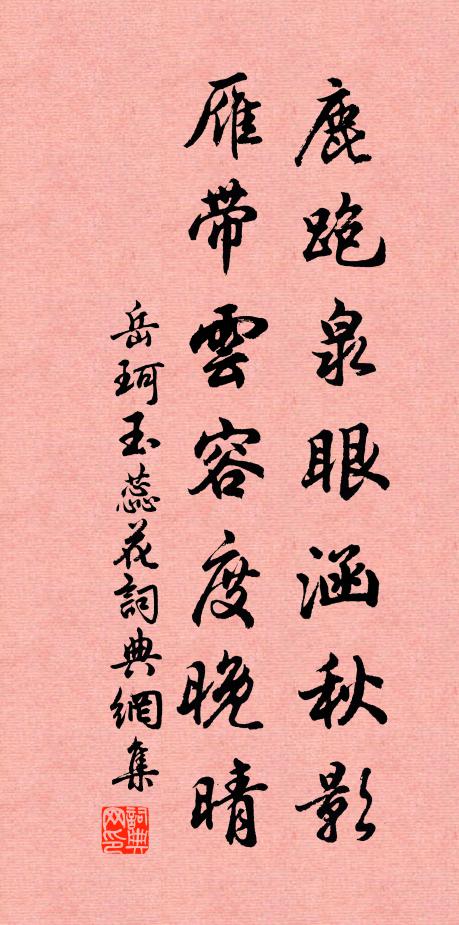 鹿跑泉眼涵秋影
雁帶雲容度晚晴
岳珂玉蕊花詞典網集
詞典网印